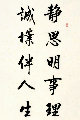 静思明事理
誠樸伴人生